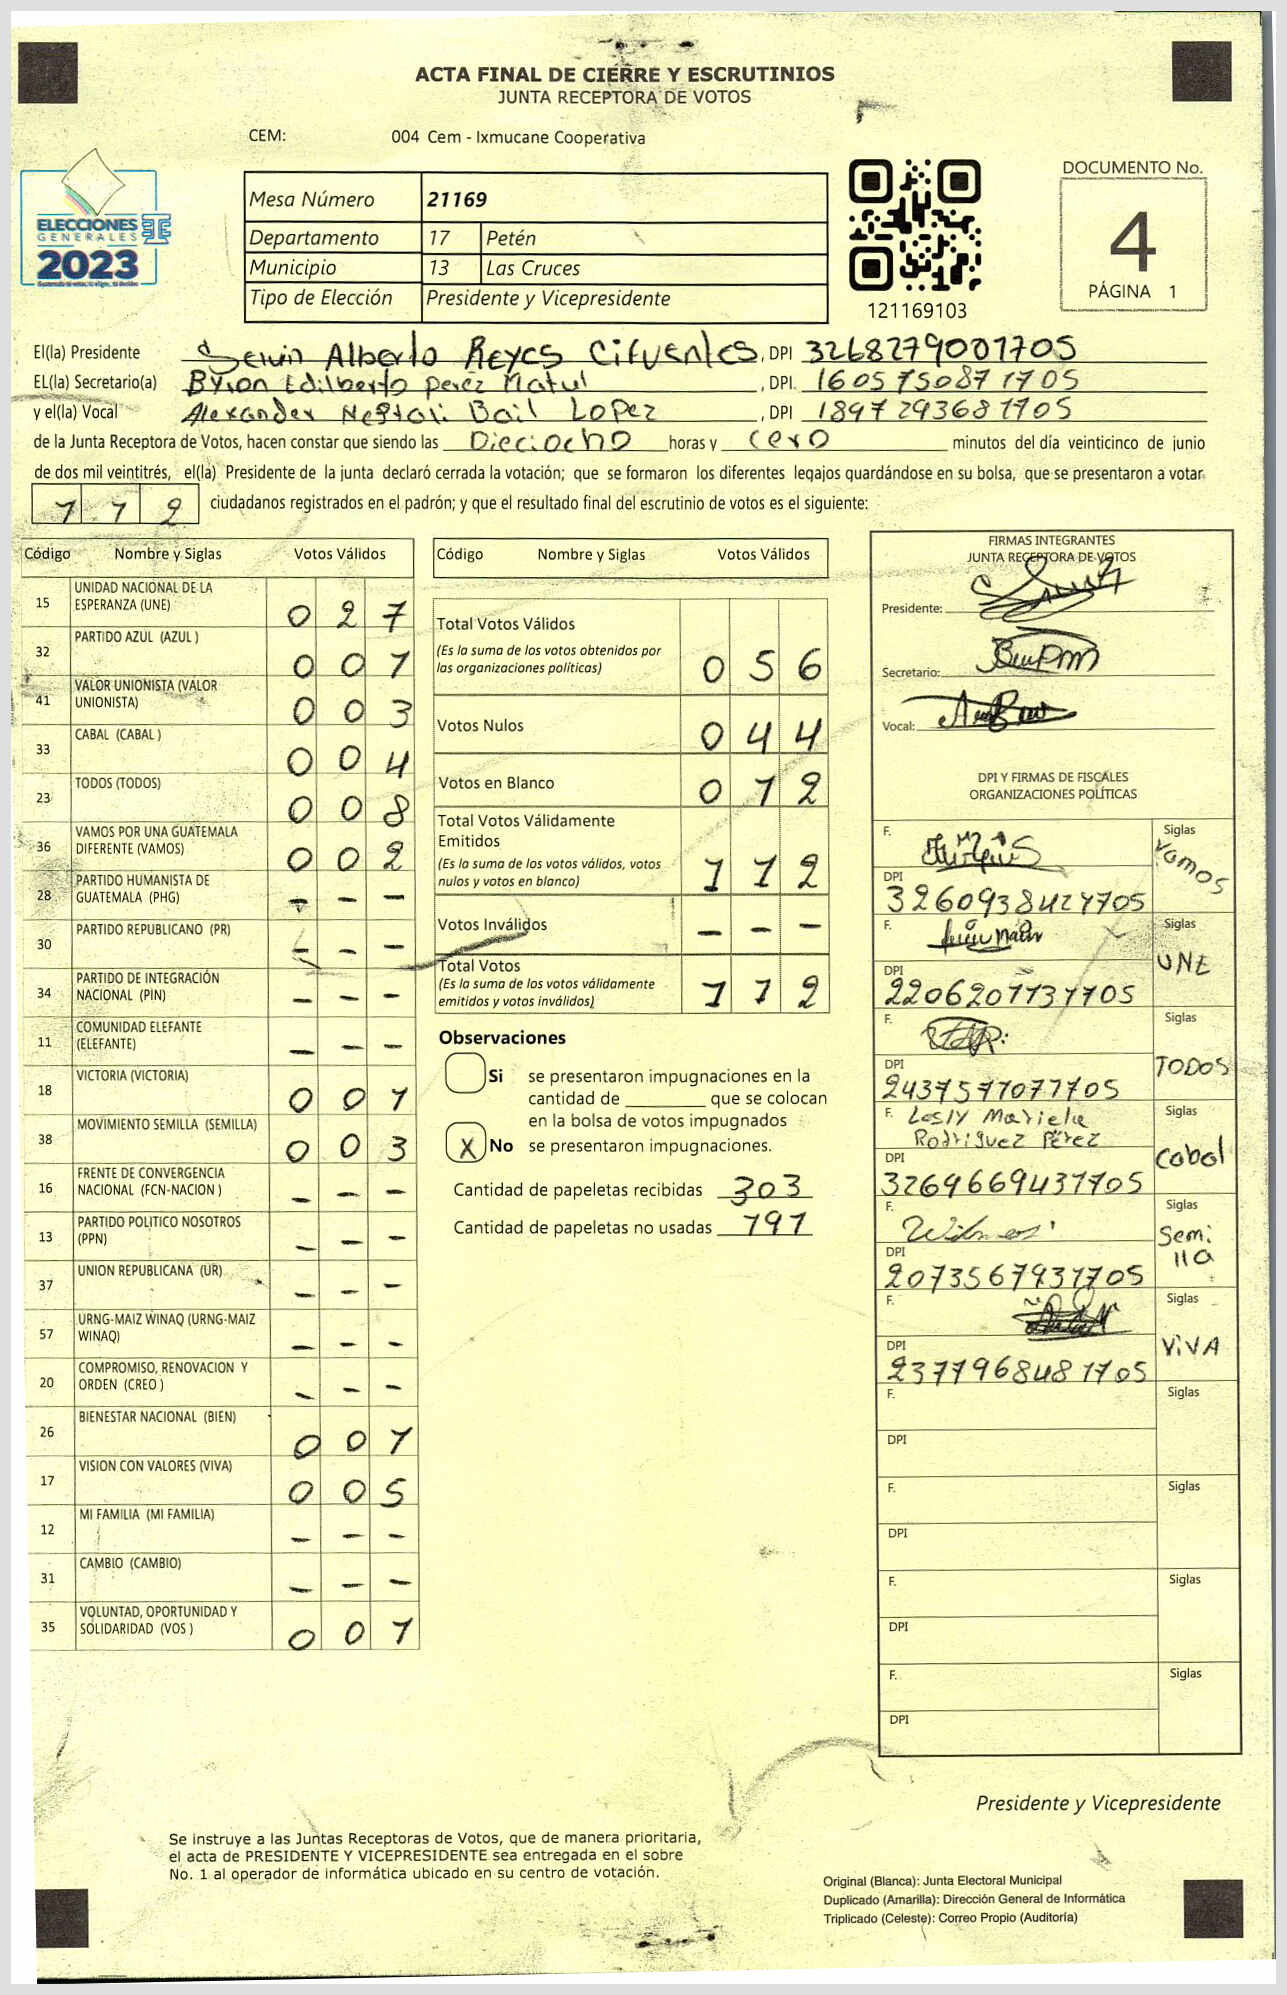 ACTA FINAL DE CIERRE Y ESCRUTINIOS
JUNTA RECEPTORA DE VOTOS
CEM: 004 Cem - Ixmucane Cooperativa
DOCUMENTO No.
4
PÁGINA 1
ELECCIONES
GENERALES
2023
Mesa Número 21169
Departamento 17 Petén
Municipio 13 Las Cruces
Tipo de Elección Presidente y Vicepresidente
121169103
El(la) Presidente Selvin Alberto Reyes Cifuentes, DPI 3268279001705
EL(la) Secretario(a) Byron Edilberto perez Matul, DPI. 1605750871705
y el(la) Vocal Alexander Neftali Bail Lopez, DPI 1897293681705
de la Junta Receptora de Votos, hacen constar que siendo las Dieciocho horas y cero minutos del día veinticinco de junio
de dos mil veintitrés, el(la) Presidente de la junta declaró cerrada la votación; que se formaron los diferentes legajos quardándose en su bolsa, que se presentaron a votar
112 ciudadanos registrados en el padrón; y que el resultado final del escrutinio de votos es el siguiente:
Código Nombre y Siglas Votos Válidos
15 UNIDAD NACIONAL DE LA ESPERANZA (UNE) 0 2 7
32 PARTIDO AZUL (AZUL ) 0 0 1
41 VALOR UNIONISTA (VALOR UNIONISTA) 0 0 3
33 CABAL (CABAL ) 0 0 4
23 TODOS (TODOS) 0 0 8
36 VAMOS POR UNA GUATEMALA DIFERENTE (VAMOS) 0 0 2
28 PARTIDO HUMANISTA DE GUATEMALA (PHG) - - -
30 PARTIDO REPUBLICANO (PR) - - -
34 PARTIDO DE INTEGRACIÓN NACIONAL (PIN) - - -
11 COMUNIDAD ELEFANTE (ELEFANTE) - - -
18 VICTORIA (VICTORIA) 0 0 1
38 MOVIMIENTO SEMILLA (SEMILLA) 0 0 3
16 FRENTE DE CONVERGENCIA NACIONAL (FCN-NACION ) - - -
13 PARTIDO POLITICO NOSOTROS (PPN) - - -
37 UNION REPUBLICANA (UR) - - -
57 URNG-MAIZ WINAQ (URNG-MAIZ WINAQ) - - -
20 COMPROMISO, RENOVACION Y ORDEN (CREO ) - - -
26 BIENESTAR NACIONAL (BIEN) 0 0 1
17 VISION CON VALORES (VIVA) 0 0 5
12 MI FAMILIA (MI FAMILIA) - - -
31 CAMBIO (CAMBIO) - - -
35 VOLUNTAD, OPORTUNIDAD Y SOLIDARIDAD (VOS ) 0 0 1
Código Nombre y Siglas Votos Válidos
Total Votos Válidos
(Es la suma de los votos obtenidos por
las organizaciones políticas) 0 5 6
Votos Nulos 0 4 4
Votos en Blanco 0 1 2
Total Votos Válidamente
Emitidos
(Es la suma de los votos válidos, votos
nulos y votos en blanco) 1 1 2
Votos Inválidos - - -
Total Votos
(Es la suma de los votos válidamente
emitidos y votos inválidos) 1 1 2
Observaciones
Si se presentaron impugnaciones en la
cantidad de ________ que se colocan
en la bolsa de votos impugnados
X No se presentaron impugnaciones.
Cantidad de papeletas recibidas 303
Cantidad de papeletas no usadas 191
FIRMAS INTEGRANTES
JUNTA RECEPTORA DE VOTOS
Presidente:
Secretario:
Vocal:
DPI Y FIRMAS DE FISCALES
ORGANIZACIONES POLÍTICAS
F. Siglas Vamos
DPI 3260938421705
F. Siglas UNE
DPI 2206201131705
F. Siglas TODOS
DPI 2437577071705
F. Lesly Mariela Rodriguez Pérez Siglas Cabal
DPI 3269669431705
F. Siglas Semilla
DPI 2073567931705
F. Siglas ViVA
DPI 2371968481705
F. Siglas
DPI
F. Siglas
DPI
F. Siglas
DPI
F. Siglas
DPI
Presidente y Vicepresidente
Se instruye a las Juntas Receptoras de Votos, que de manera prioritaria,
el acta de PRESIDENTE Y VICEPRESIDENTE sea entregada en el sobre
No. 1 al operador de informática ubicado en su centro de votación.
Original (Blanca): Junta Electoral Municipal
Duplicado (Amarilla): Dirección General de Informática
Triplicado (Celeste): Correo Propio (Auditoría)